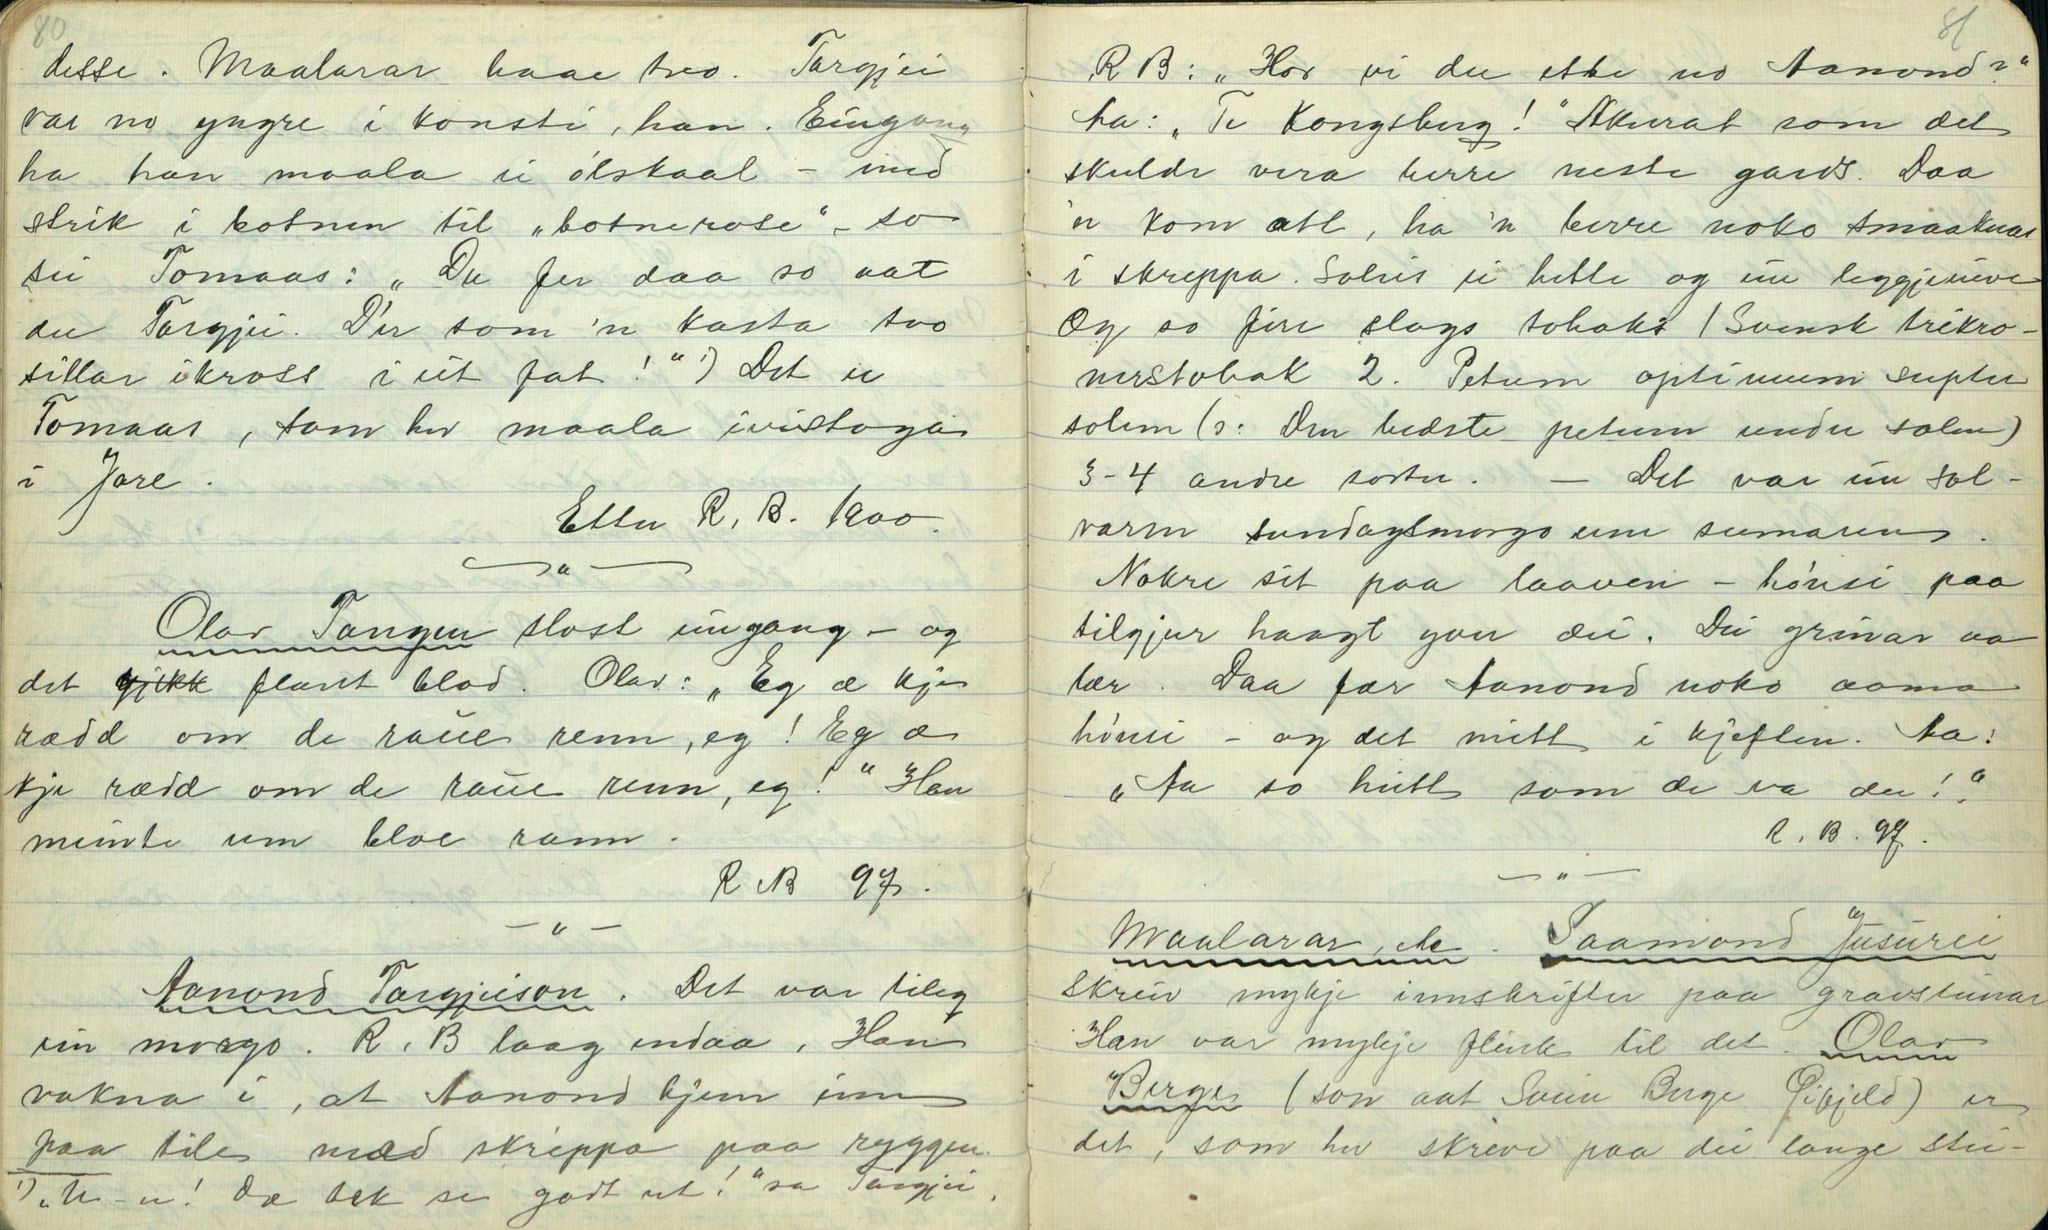 80
desse. Maalarar baae tvo. Targjei
var no yngre i konsti, han. Eingong
ha han maala ei ólskaal - med
strik i botnen til „botnerose“ - so
sei Tomaas: „Du fer daa so aat
du Targjei. D'er som 'n kasta tvo
sillar ikross i eit fat!“ 1) Det er
Tomaas, som hev maala iveristoga
i Jore.
Etter R. B. 1900.
— „ —
Olav Tangen slost eingong - og
det gjekk flaut blod. Olav: „Eg æ kje
rædd om de raue renn, eg! Eg æ
kje rædd om de raue renn, eg!“ Han
meinte um bloe rann.
R B 97.
— „ —
Aanond Targjeison. Det var tileg
ein morgo. R. B laag endaa. Han
vakna i, at Aanond kjem inn
paa tile med skreppa paa ryggen.
1) „ - n! Dæ bek se godt ut!“ sa Targjei.
81
R B: „Hor vi du ette no Aanond?“
Aa: „Te Kongsberg!“ Akurat som det
skulde vera berre neste gards. Daa
'n kom att, ha 'n berre noko smaaknas
i skreppa. Soleis ei hette og ein leggjeneve
Og so fire slags tobak: 1 Svensk trikro-
nerstobak 2. Petum optimum supter
solem (ɔ: Den bedste petum under solen)
3-4 andre sorter. — Det var ein sol-
varm sundagsmorgo um sumaren.
Nokre sit paa laaven - hónsi paa
tilgjur haagt yvu dei. Dei grinar aa
lær. Daa fær Aanond noko aama
hónsi - og det mitt i kjeften. Aa:
„Aa so hitt som de va du!“
R. B. 97.
— „ —
Maalarar, etc. Taamond Jusurei
skreiv mykje innskrifter paa gravsteinar
Han var mykje flink til det. Olav
Berge (son aat Svein Berge Øifjeld) er
det, som hev skreve paa dei lange stei-